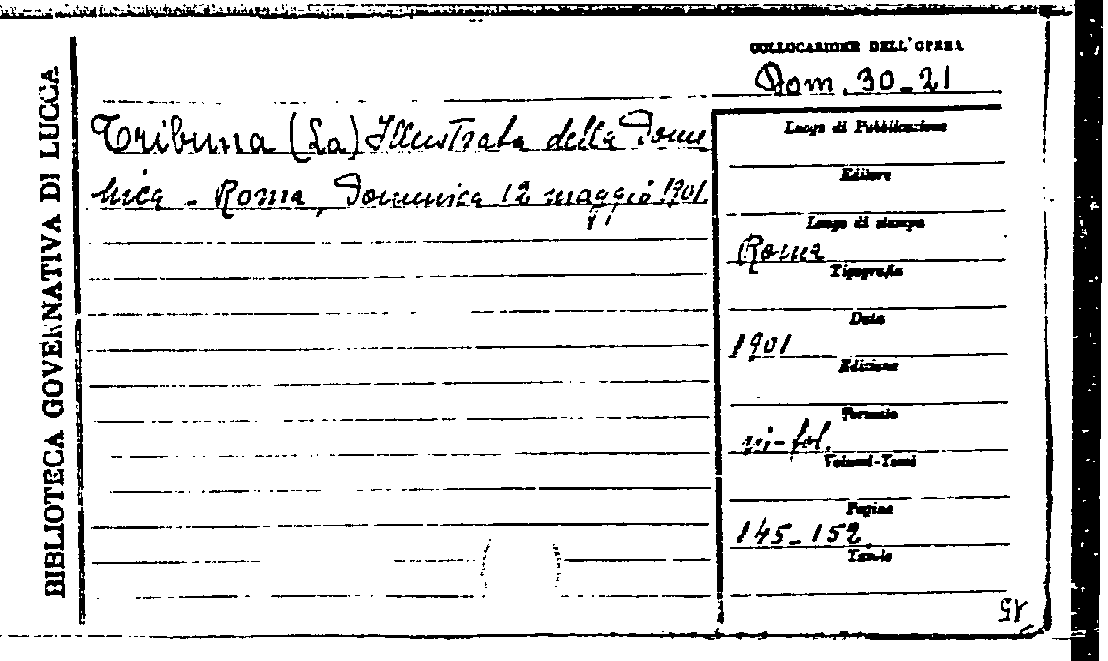 BIBLIOTECA GOVERNATIVA DI LUCCA
COLLOCAZIONE DELL'OPERA
Dom. 30-21
Tribuna (La) Illustrata della Dome
nica - Roma, Domenica 12 maggio 1901.
Luogo di Pubblicazione
Editore
Luogo di stampa
Roma
Tipografia
Data
1901
Edizione
Formato
in-fol.
Volumi-Tomi
Pagine
145-152
Tavole